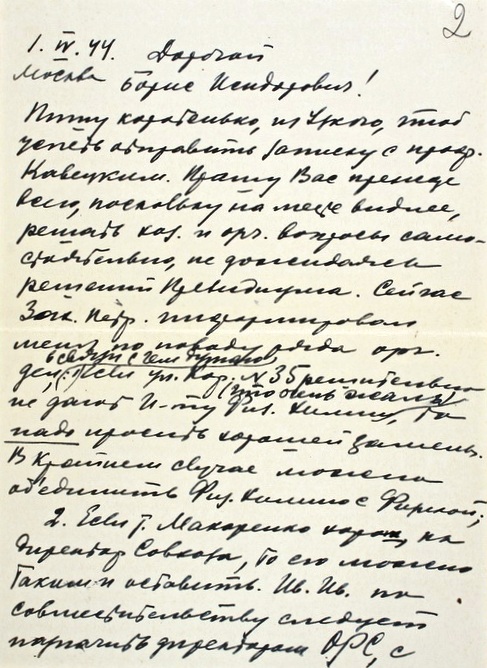 2
1. IV. 44. Дорогой
Москва Борис Исидорович!
Пишу коротенько, из Узкого, чтоб
успеть отправить записку с проф.
Кавецким. Прошу Вас прежде
всего, поскольку на месте виднее,
решать хоз. и орг. вопросы само-
стоятельно, не дожидаясь
решений Президиума. Сейчас
Зах. Петр. информировал
меня по поводу ряда орг.
дел, (1) Если ул. Кор. N 35 решительно
(что очень жаль)
не дают И-ту Физ. Химии, то
надо просить хорошей замены.
В крайнем случае можно
объединить Физ. Химию с Физикой;
2. Если т. Макаренко хорош, как
директор Совхоза, то его можно
таким и оставить. Ив. Ив. по
совместительству следует
назначить директором ОРС, с